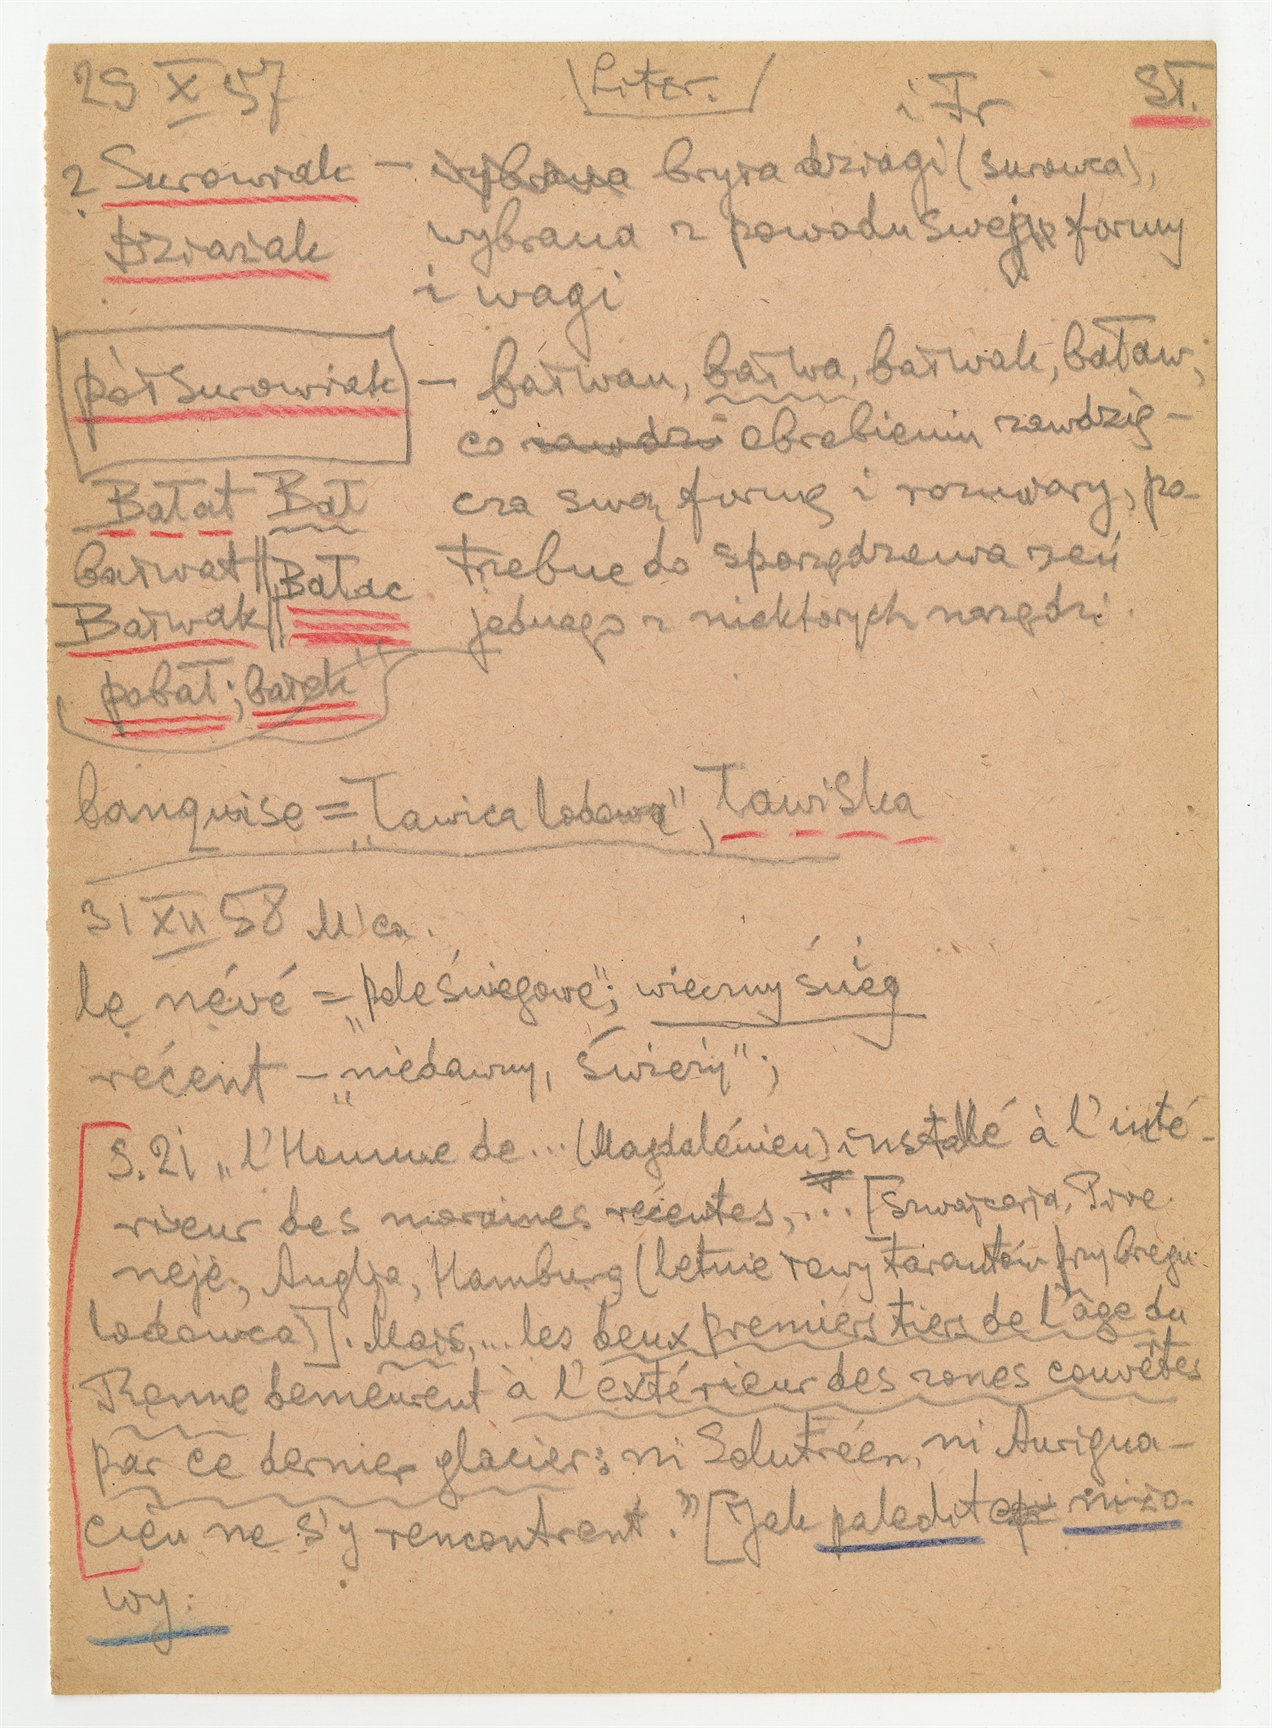 29 X 57 Liter. i Fr St.
? Surowiak — wybrana bryła dziagi (surowca),
Dziaziak wybrana z powodu swej formy
i wagi
półsurowiak — bałwan, bałwa, bałwak, baław,
co zawdzi obrobieniu zawdzię-
Bałat Bał cza swą formę i rozmiary, po-
bałwat || Bałac trzebne do sporządzenia zeń
Bałwak || jednego z niektorych narzędzi.
pobał; bałek
banquise = „ławica lodowa", ławiska
31 XII 58 M/ca.
le névé = „pole śniegowe"; wieczny śnieg
récent — „niedawny, świeży";
S. 21 „l'Homme de... (Magdalénien) installé à l'inté-
rieur des moraines récentes, ... [Szwajcarja, Pire-
neje, Anglja, Hamburg (letnie łowy tarantów przy brzegu
lodowca)]. Mais, ... les deux premiers tiers de l'âge du
Renne demeurent à l'extérieur des zones couvêtes
par ce dernier glacier: ni Solutréen, ni Aurigna-
cien ne s'y rencontrent." [Jak paleolit niżo-
wy: